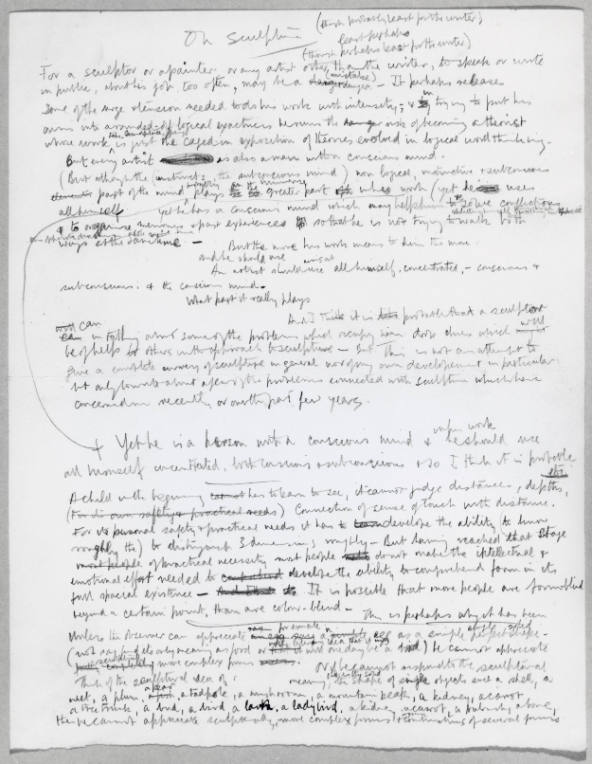 On Sculpture
(though probably least for the writer)
least perhaps
(though perhaps least for the writer)
For a sculptor or a painter or any artist other than the writer, to speak or write
in public, about his job too often, may be a mistake danger – It perhaps releases
some of the tension needed to do his work with intensity; & in trying to put his
aims into rounded-off logical exactness he runs the risk of becoming a theorist
whose work is just the caged in exposition of theories evolved in logical word thinking.
But every artist is also a man with a conscious mind.
(But although the instinctive, the subconscious mind) non logical, instinctive & subconscious
part of the mind plays greater part in his work (yet he uses
all himself yet he has a conscious mind which may help him to solve conflictions
& to organise memories & past experiences so that he is not trying to walk both
ways at the same time – But the more his work means to him the more
and he should use
An artist should use all himself, concentrated, – conscious &
subconscious. & the conscious mind –
What part it really plays
And I think it is probable that a sculptor
can in talking about some of the problems which occupy him drop clues which will
be of help to others in the approach to sculpture – But This is not an attempt to
give a complete survey of sculpture in general nor of my own development in particular
but only towards about a few of the problems connected with sculpture which have
concerned me recently or over the past few years.
+ Yet he is a person with a conscious mind & in his work he should use
all himself concentrated, both conscious & subconscious & so I think it is probable
A child in the beginning has to learn to see, it cannot judge distances, depths,
(For its own safety & practical needs) Connection of sense of Touch with distance.
For its personal safety & practical needs it has to develop the ability to know
roughly the) to distinguish 3 dimensions roughly – But having reached that stage
of practical necessity most people do not make the intellectual &
emotional effort needed to develop the ability to comprehend form in its
full spacial existence – It is possible that more people are formblind
beyond a certain point, than are colour-blind – This is perhaps why it has been
Unless the observer can appreciate for example a simple egg as a simple single solid shape –
(not say find its only meaning as food or it will one day be a bird) he cannot appreciate
more complex forms
Think of the sculptural idea of Or if he cannot respond to the sculptural
meaning, the shape of simple objects such a shell, a
nut, a plum, a pear, a tadpole, a mushroom, a mountain peak, a kidney, a carrot,
a tree trunk, a bud, a bird, a lark, a ladybird, a kidney, a carrot, a bulrush, a bone,
then he cannot appreciate sculpturally, more complex forms & combinations of several forms